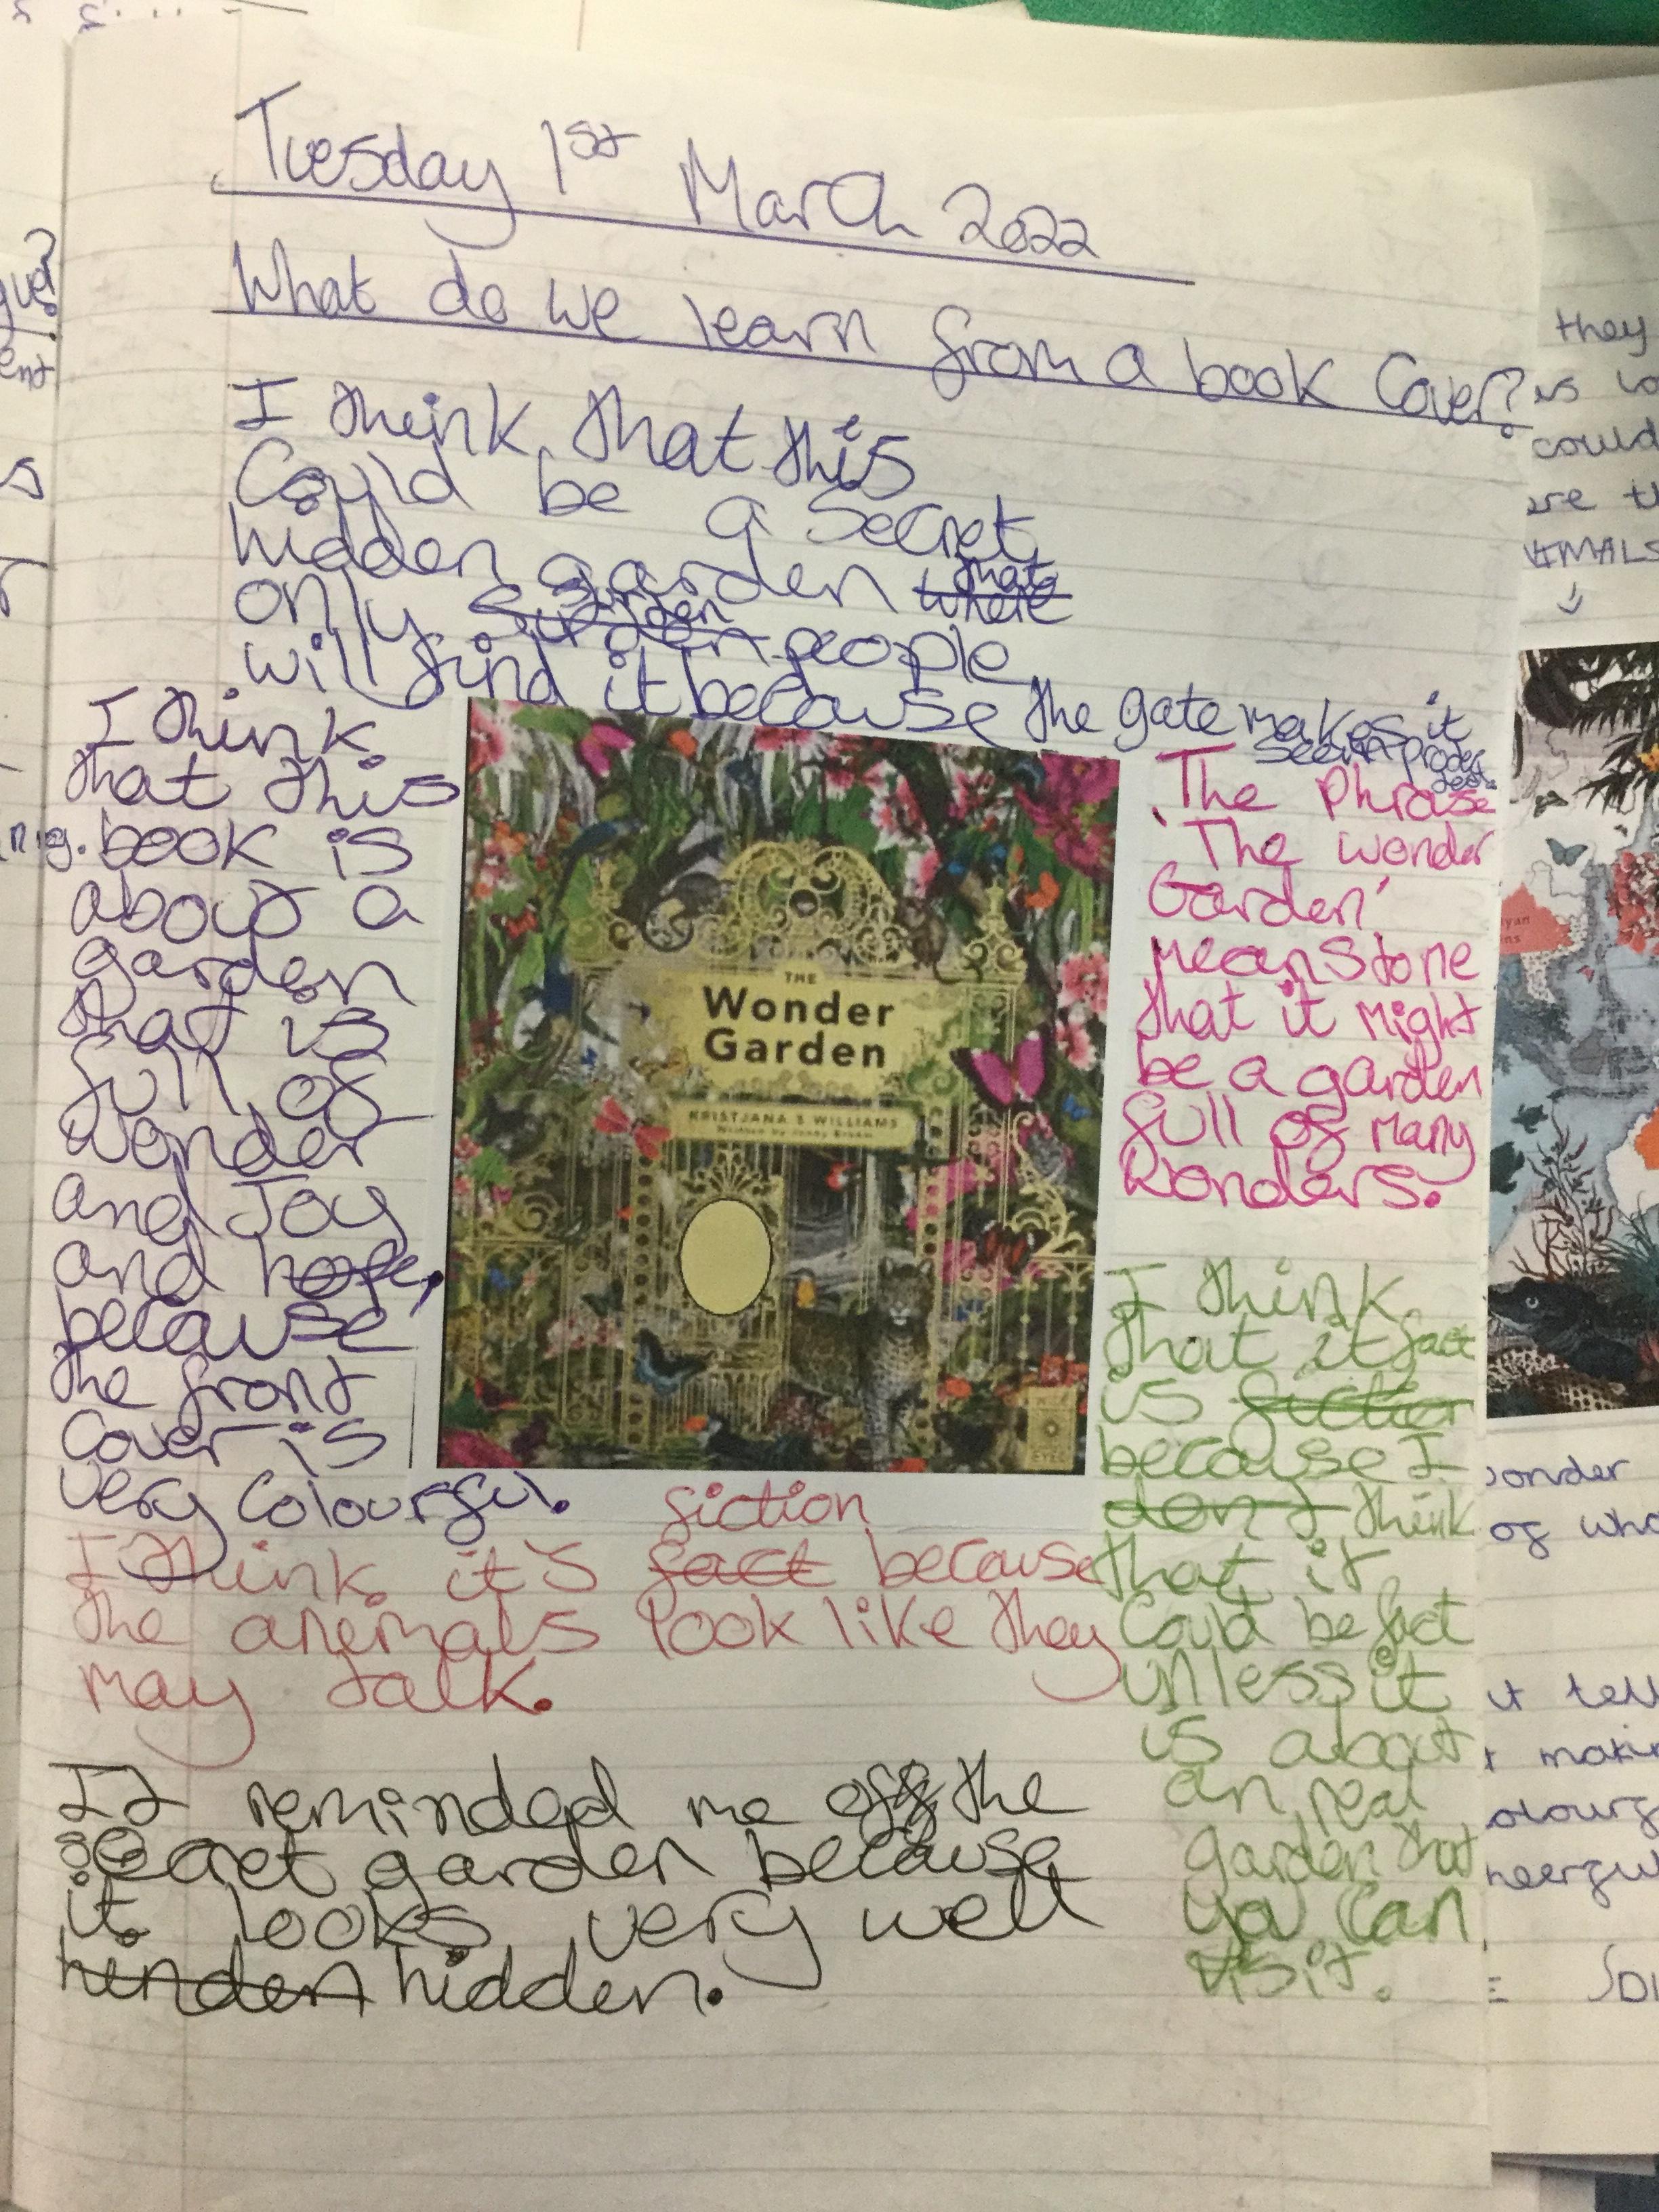 Tuesday 1st March 2022
What do we learn from a book Cover?
I think that this
Could be a secret
hidden garden that
only people
will find it because the gate makes it
seem
I think
that this
book is
about a
garden
that is
full of
wonder
and Joy
and hope,
because
the front
Cover is
very Colourful.
THE
Wonder
Garden
KRISTJANA S WILLIAMS
Written by Jenny Broom
The Phrase
'The wonder
Garden'
means to me
that it might
be a garden
full of many
wonders.
I think
that it fact
is fiction
because I
don't think
that it
Could be fact
unless it
is about
an real
garden that
you can
visit.
fiction
I think it's fact because
the animals look like they
may talk.
It reminded me off the
secret garden because
it looks very well
hinden hidden.
they
could
are
wonder
of